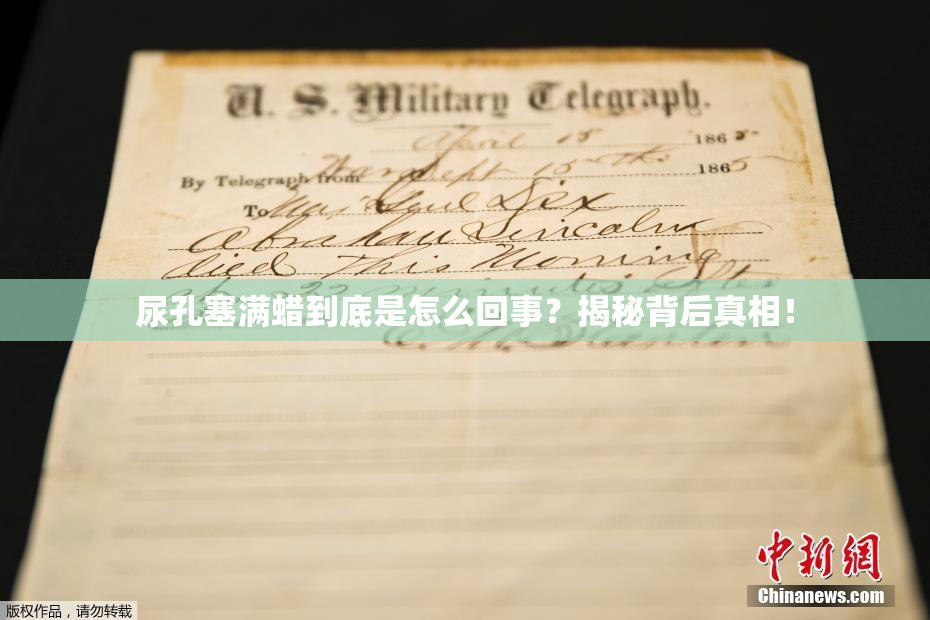 U. S. Military Telegraph.
April 15 1865
By Telegraph from War Dept 15th 1865
To Maj Genl Dix
Abraham Lincoln
died This Morning
22 minutes after
尿孔塞满蜡到底是怎么回事？揭秘背后真相！
E. M. Stanton
中新网
Chinanews.com
版权作品，请勿转载